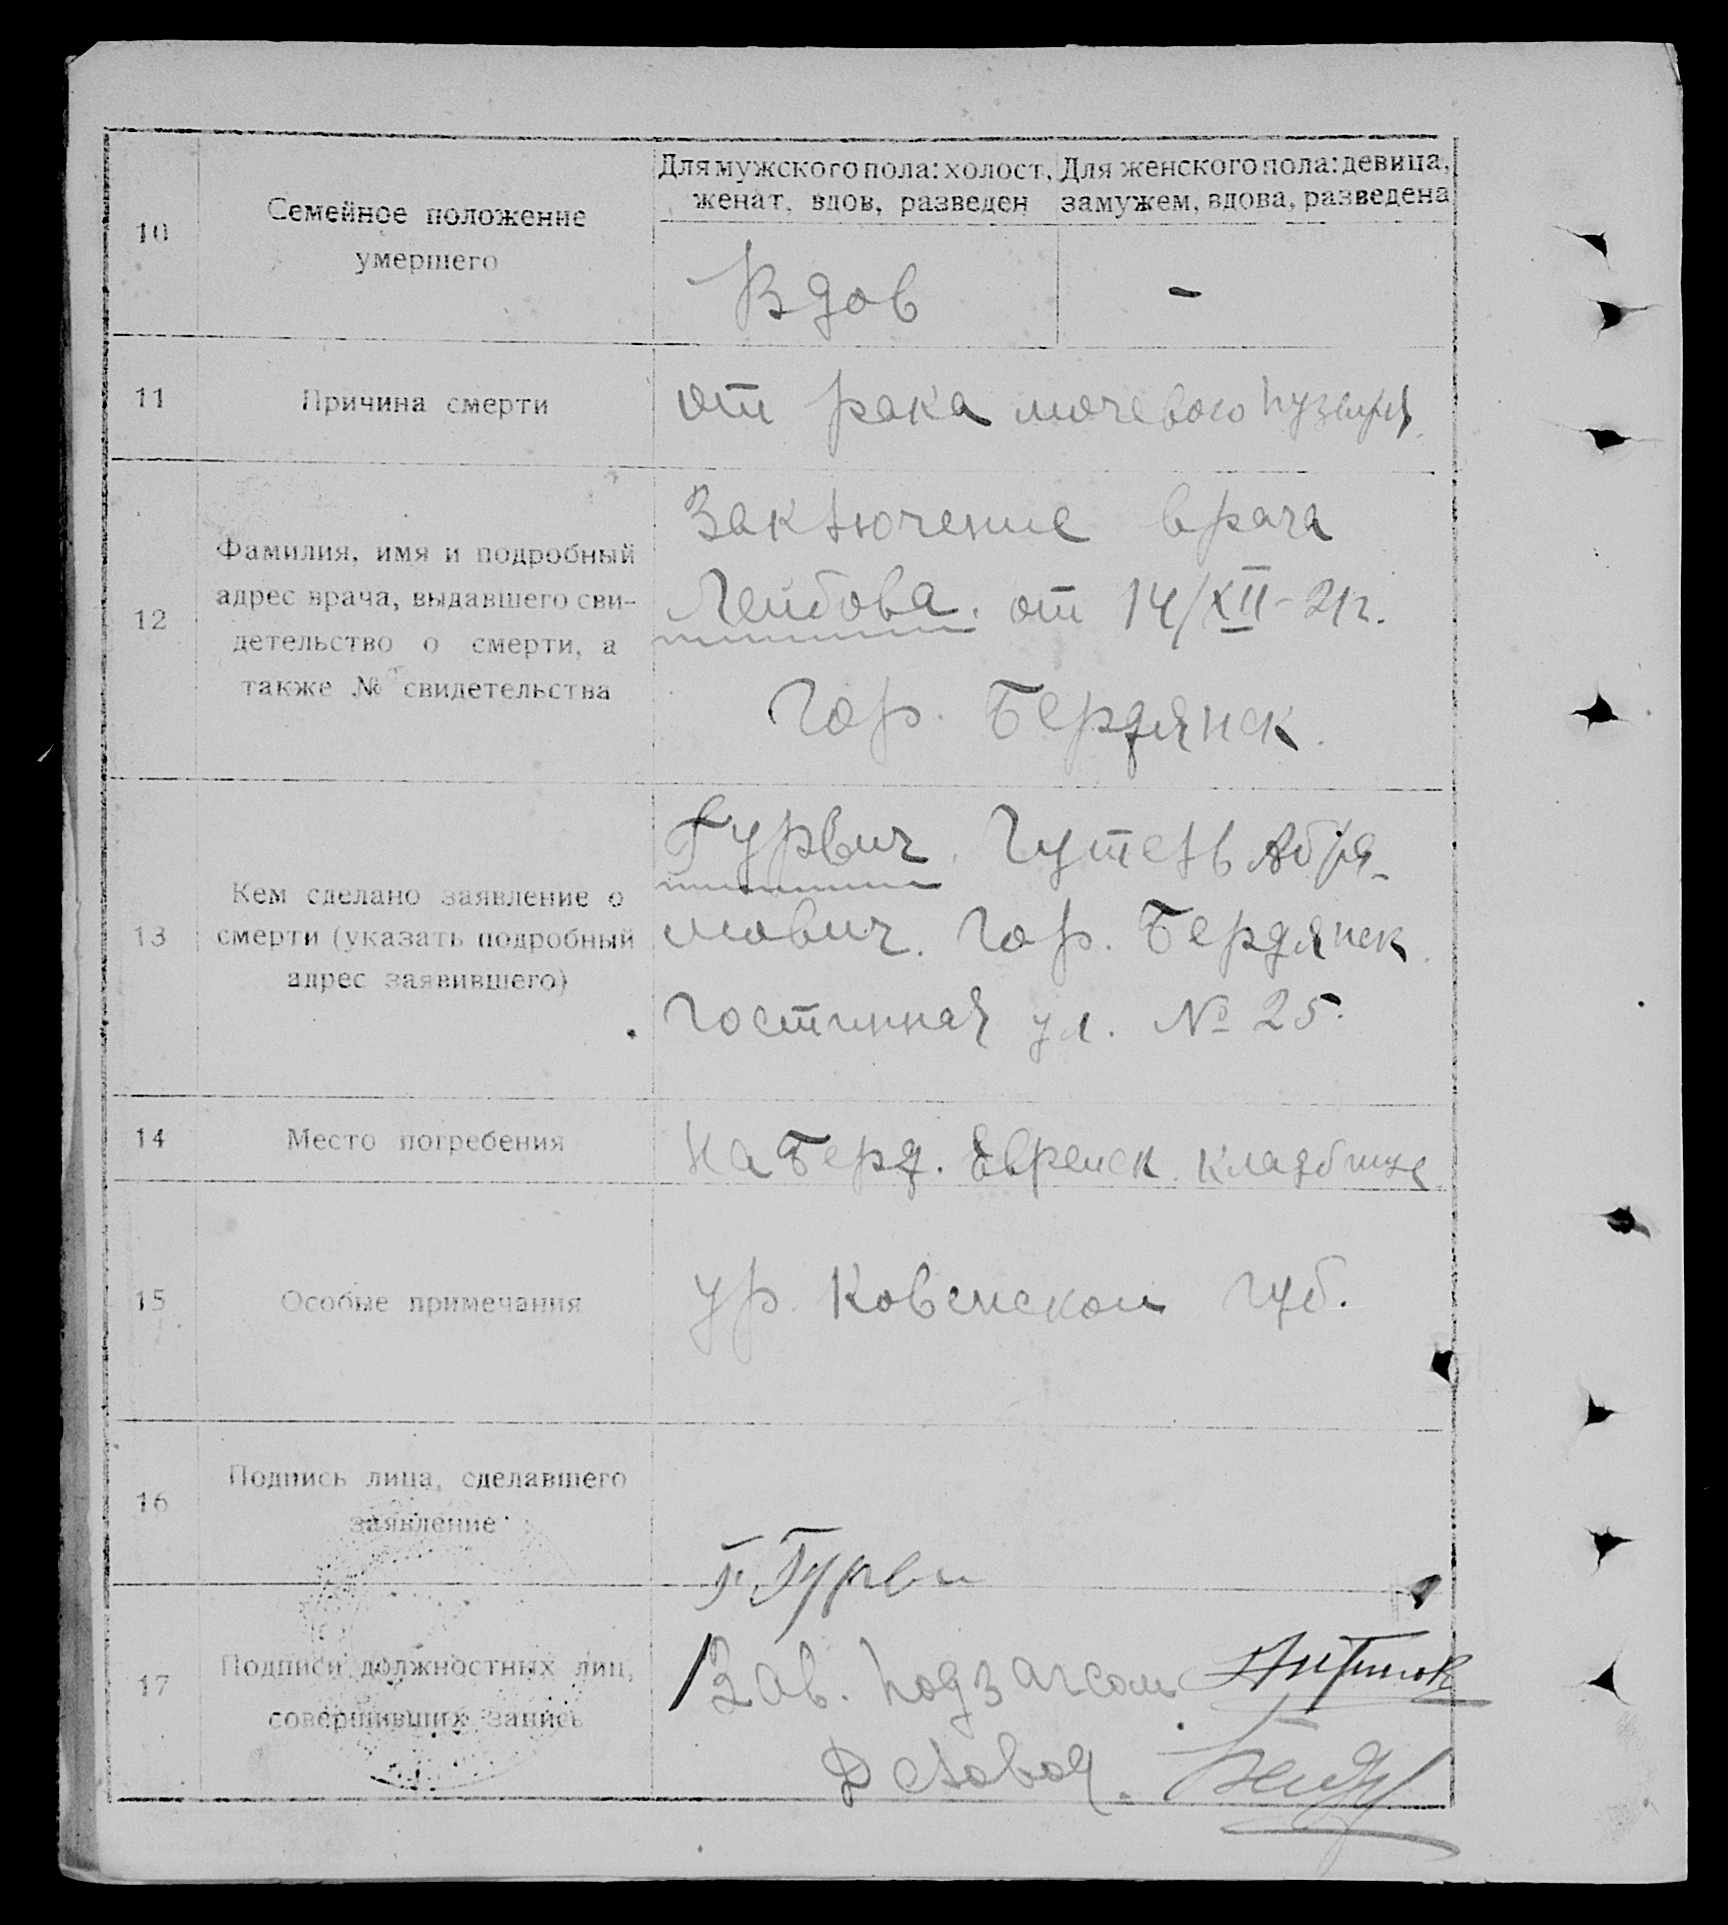 Для мужского пола: холост, женат, вдов, разведен
Для женского пола: девица, замужем, вдова, разведена
10
Семейное положение
умершего
Вдов
-
11
Причина смерти
от рака мочевого пузыря
12
Фамилия, имя и подробный
адрес врача, выдавшего сви-
детельство о смерти, а
также № свидетельства
Заключение врача
Лейбова. от 14/XII-21г.
Гор. Бердянск.
13
Кем сделано заявление о
смерти (указать подробный
адрес заявившего)
Гурвич. Гутель Абра-
мович. Гор. Бердянск.
Гостинная ул. № 25.
14
Место погребения
На Берд. Еврейск. кладбище
15
Особые примечания
ур. Ковенской губ.
16
Подпись лица, сделавшего
заявление
Г. Гурви
17
Подписи должностных лиц,
совершивших запись
Зав. подзагсом
Деловод.